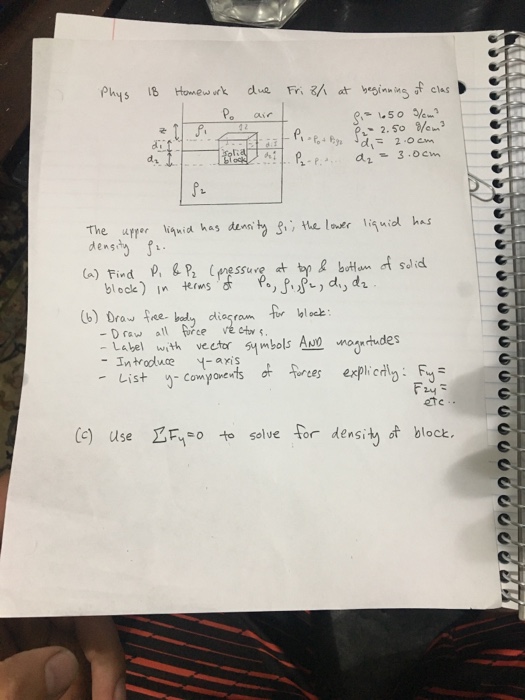 Phys 18 Homework due Fri 3/1 at beginning of clas
P₀ air
ρ₁ = 1.50 g/cm³
ρ₂ = 2.50 g/cm³
d₁ = 2.0 cm
d₂ = 3.0 cm
z ρ₁
P₁
d₁
d₂ solid block
P₂
ρ₂
The upper liquid has density ρ₁; the lower liquid has
density ρ₂.
(a) Find P₁ & P₂ (pressure at top & bottom of solid
block) in terms of P₀, ρ₁, ρ₂, d₁, d₂.
(b) Draw free-body diagram for block:
- Draw all force vectors.
- Label with vector symbols AND magnitudes
- Introduce y-axis
- List y-components of forces explicitly: Fy =
F2y =
etc..
(c) Use ΣFy=0 to solve for density of block.